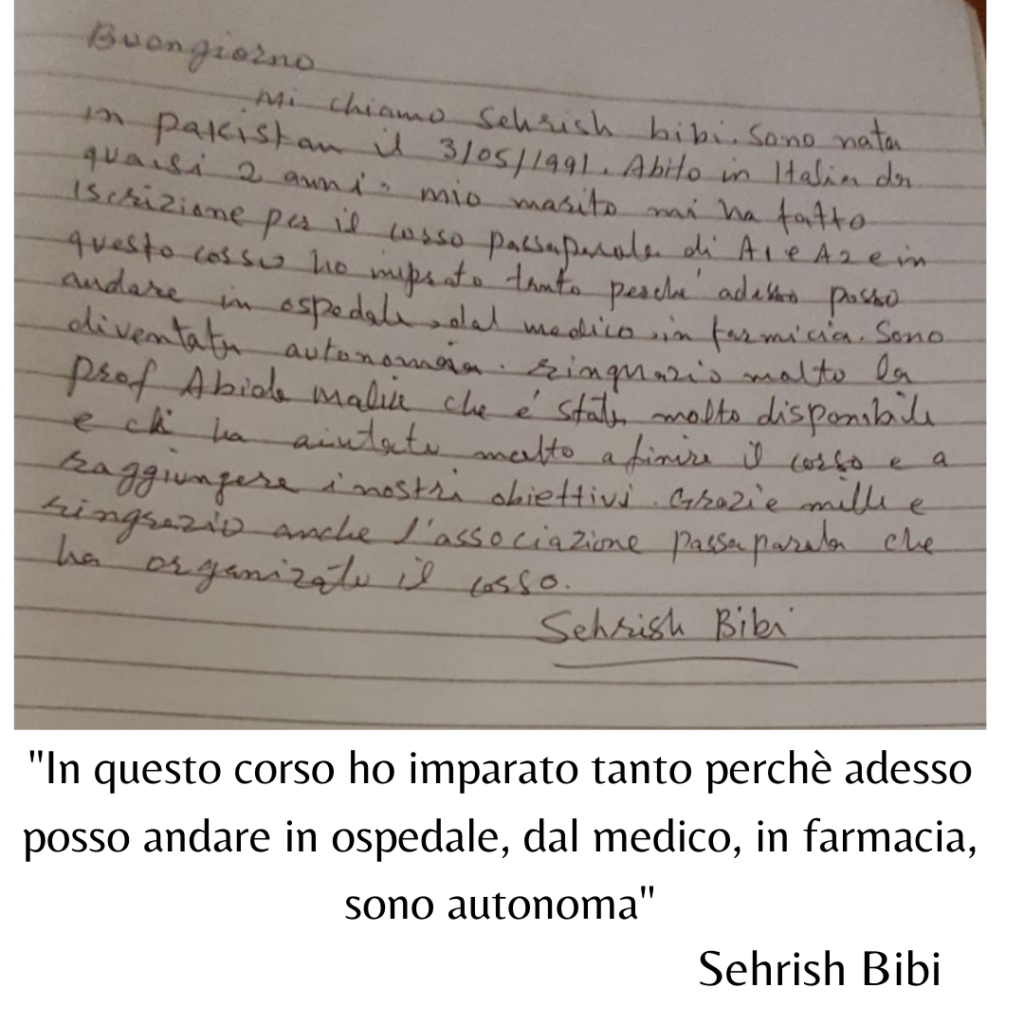 Buongiorno
Mi chiamo Sehrish bibi. Sono nata
in pakistan il 3/05/1991. Abito in Italia da
quasi 2 anni. mio marito mi ha fatto
iscrizione per il corso passaparola di A1 e A2 e in
questo corso ho imprato tanto perché adesso posso
andare in ospedale, dal medico, in farmicia. Sono
diventata autonomia. ringrazio molto la
prof Abida Malik che é stata molto disponibile
e ch ha aiutato molto a finire il corso e a
raggiungere i nostri obiettivi. Grazie mille e
ringrazio anche l'associazione passaparola che
ha organizato il corso.
Sehrish Bibi
"In questo corso ho imparato tanto perchè adesso
posso andare in ospedale, dal medico, in farmacia,
sono autonoma"
Sehrish Bibi